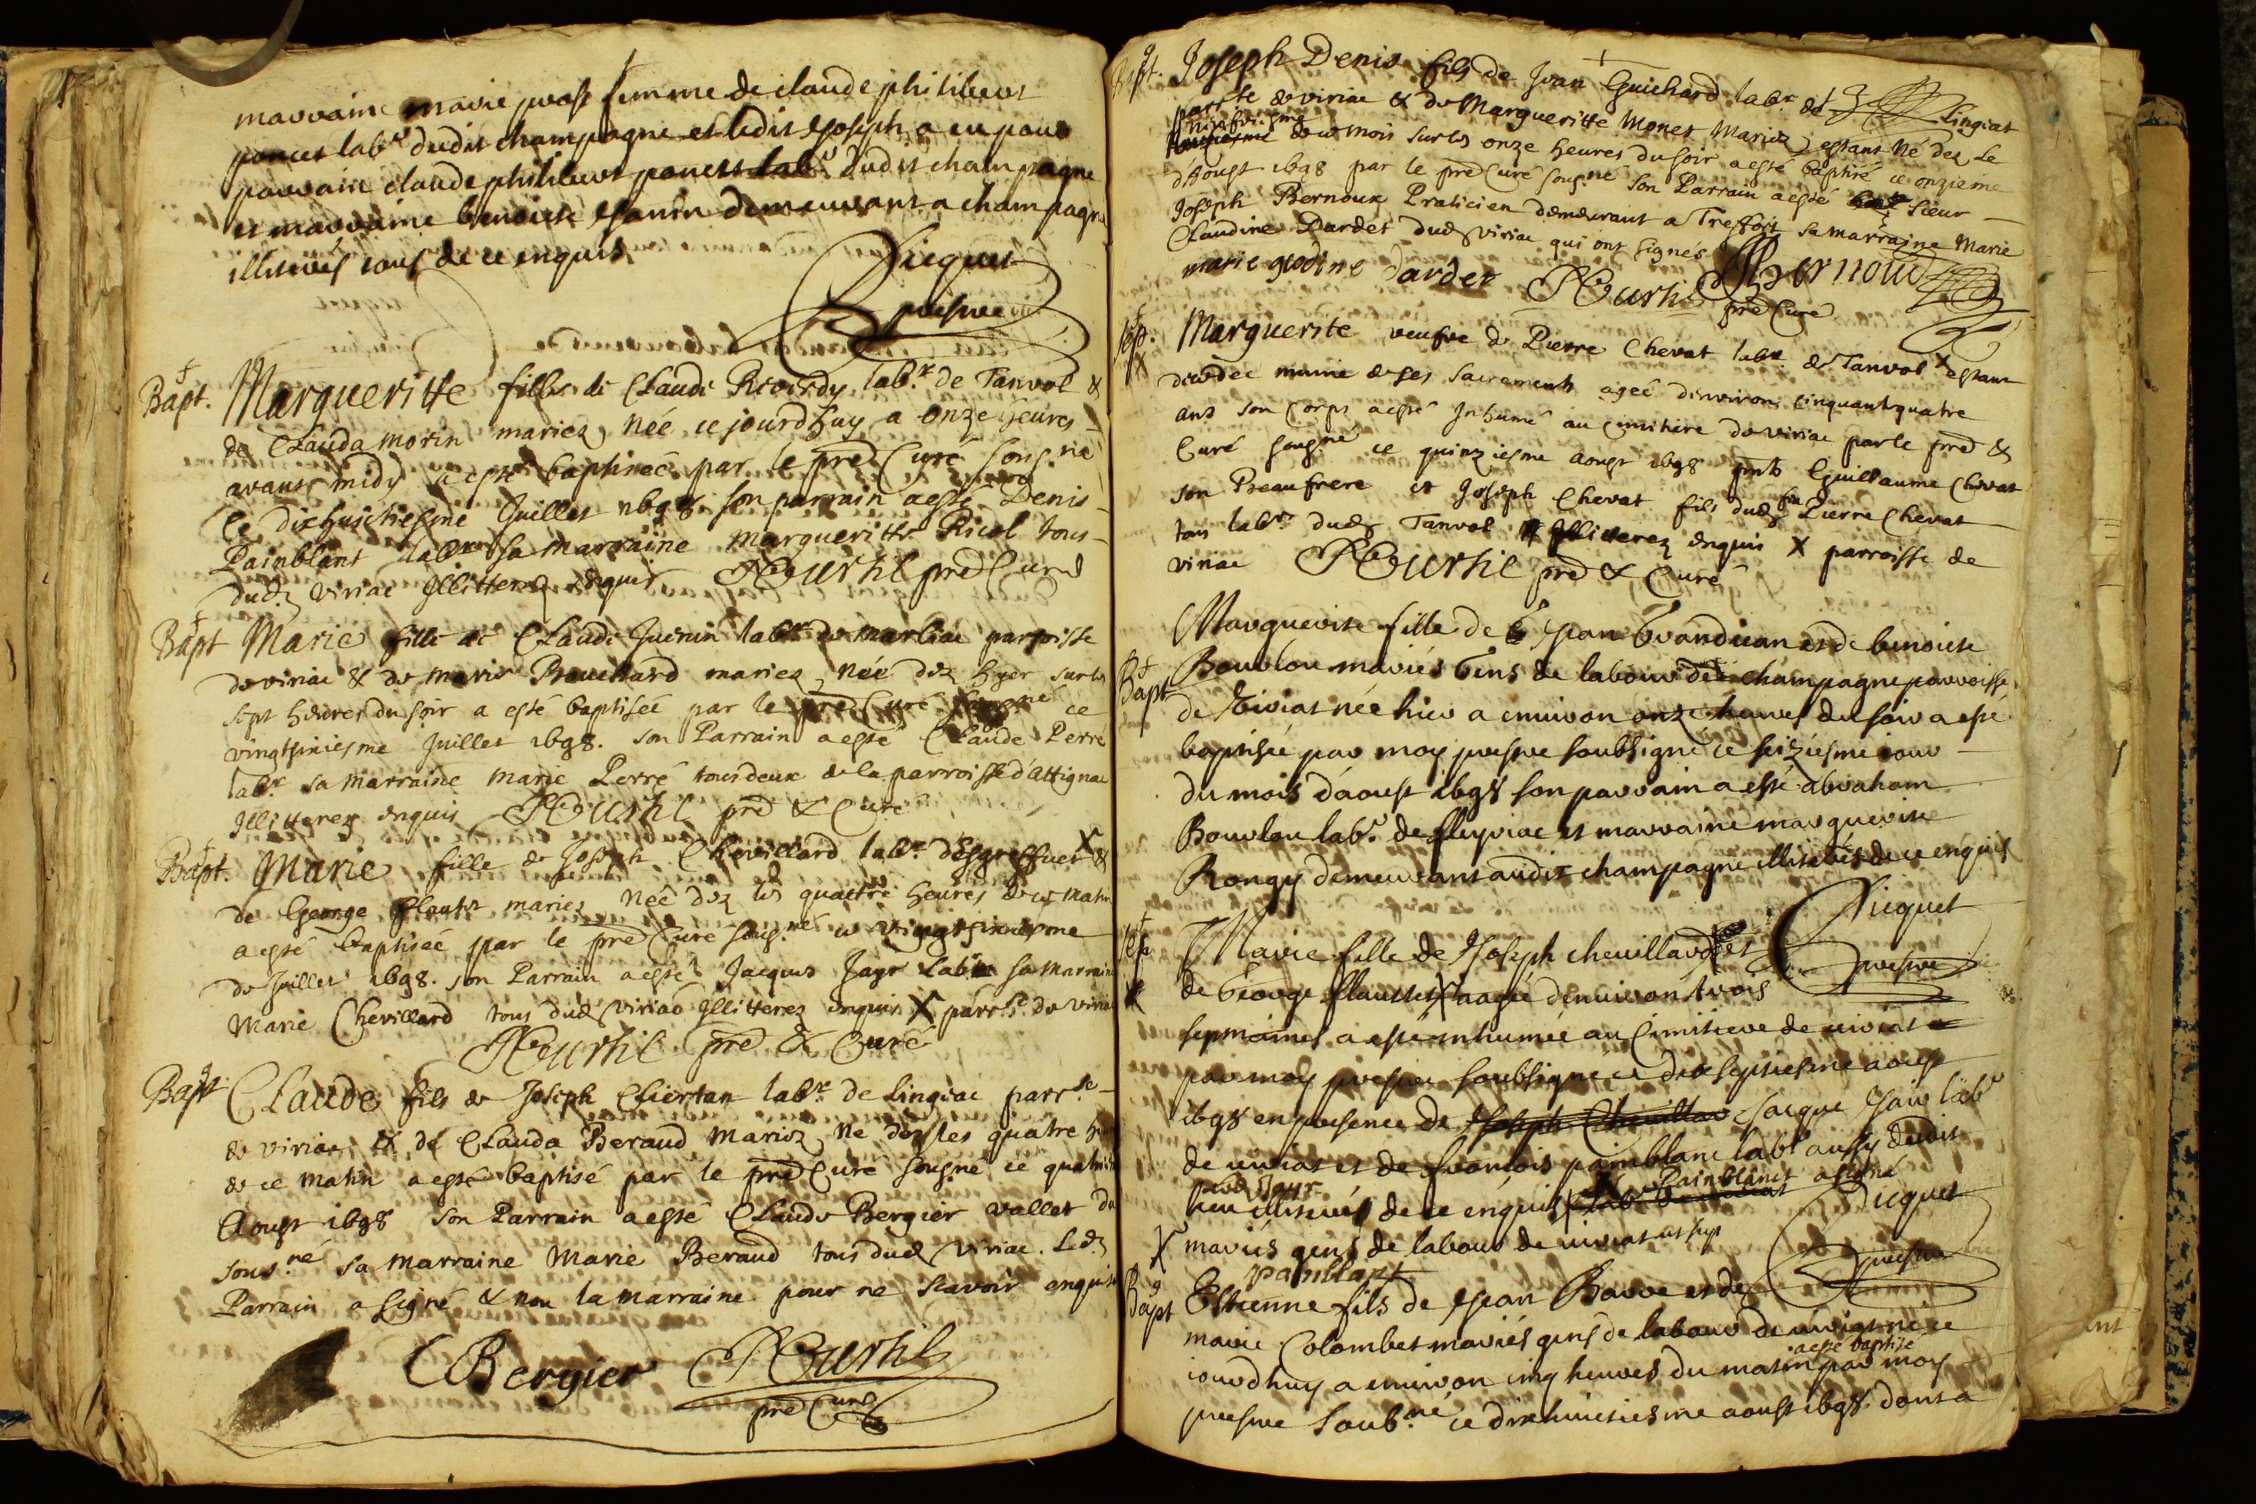 marraine marie prost femme de claude philibert
poncet lab.r dudit champagne et ledit Joseph a eu pour
parrain claude philibert poncet lab.r dudit champagne
et marraine benoiste Janin demeurant a champagne
illiterés tous de ce enquis
Picquet
prestre
Bapt. Margueritte fille de Claude Revoirdy lab.r de Tanvol &
de Clauda morin mariez, née ce jourdhuy a onze heures
avant midy a esté baptisée par le pre Curé sousné
le dixhuictiesme Juillet 1698. son parrain a esté Denis
Painblant labr sa marraine margueritte Ricol tous
dud. Viriac Illitterez enquis pre Curé
Bapt Marie fille de Claude Juenin labr de marliac parroisse
de viriac & de marie Bouchard mariez, née dez hyer sur les
sept heures du soir a esté baptisée par le pre Curé sousné ce
vingtsiniesme Juillet 1698. son Parrain a esté Claude Perré
labr sa marraine marie Perré tous deux de la parroisse d'Attignac
Illitterez enquis pre & Curé
Bapt. Marie fille de Joseph Chevillard labr X &
de George mariez née dez les quattre heures de ce matin
a esté baptisée par le pre Curé sousné ce vingtsiniesme
de Juillet 1698. son Parrain a esté Jacques Jayr labr sa marraine
Marie Chevillard tous dud. viriac Illitterez enquis X parrse de viriac
pre & Curé
Bapt Claude fils de Joseph labr de Lingiac parrse
de viriac & de Clauda Beraud mariez, né dez les quatre
de ce matin a esté baptisé par le pre Curé sousné ce
Aoust 1698 son Parrain a esté Claude Bergier vallet du
sousné sa marraine Marie Beraud tous dud. Viriac. Led.
Parrain a signé & non la marraine pour ne scavoir enquise
C Bergier
pre Curé
Bapt. Joseph Denis fils de Jean Guichard labr de Lingiat
parrse de viriac & de Margueritte Monet Mariez, estant né dez le
de ce mois sur les onze heures du soir a esté baptisé ce onzieme
d'Aoust 1698 par le pre Curé sousné son Parrain a esté sieur
Joseph Bernoux Praticien demeurant a Treffort sa marraine Marie
Claudine Dardet dud. viriac qui ont signés
marie dardet Bernoud
pre Curé
Sep. Marguerite veufve de Pierre Chevat labr de Tanvol X estant
decedée munie de ses sacrements agée d'environ cinquante quatre
ans son corps a esté Inhumé au cimitiere de viriac par le pre &
Curé sousné ce quinziesme aoust 1698 pnts Guillaume Chevat
son Beaufrere et Joseph Chevat fils dud. feu Pierre Chevat
tous labrs dud. Tanvol Illitterez enquis X parroisse de
viriac pre & Curé
Bapt Marguerite fille de Jean Grandjean et de benoiste
Bourlon mariés gens de labour de champagne parroisse
de Viriat née hier a environ onze heures du soir a esté
baptisée par moy prestre soubsigné ce seiziesme jour
du mois d'aoust 1698 son parrain a esté abraham
Bourlon labr de fleyriac et marraine marguerite
Rongy demeurant audit champagne illiterés de ce enquis
Picquet
prestre
Sep Marie fille de Joseph chevillard et
de George X aagée d'environ trois
sepmaines a esté inhumée au Cimitiere de viriat
par moy prestre soubsigné ce dix septiesme aoust
1698 en presence de Jacque Jair labr
de viriat et de françois painblanc labr aussy dudit
lieu illiterés de ce enquis Painblanct a signé
Picquet
prestre
X mariés gens de labour de viriat
painblant
Bapt Estienne fils de Jean Barre et de
marie Colombet mariés gens de labour de viriat né ce
jourdhuy a environ cinq heures du matin a esté baptisé par moy
prestre soub.né ce dixhuictiesme aoust 1698. dont a